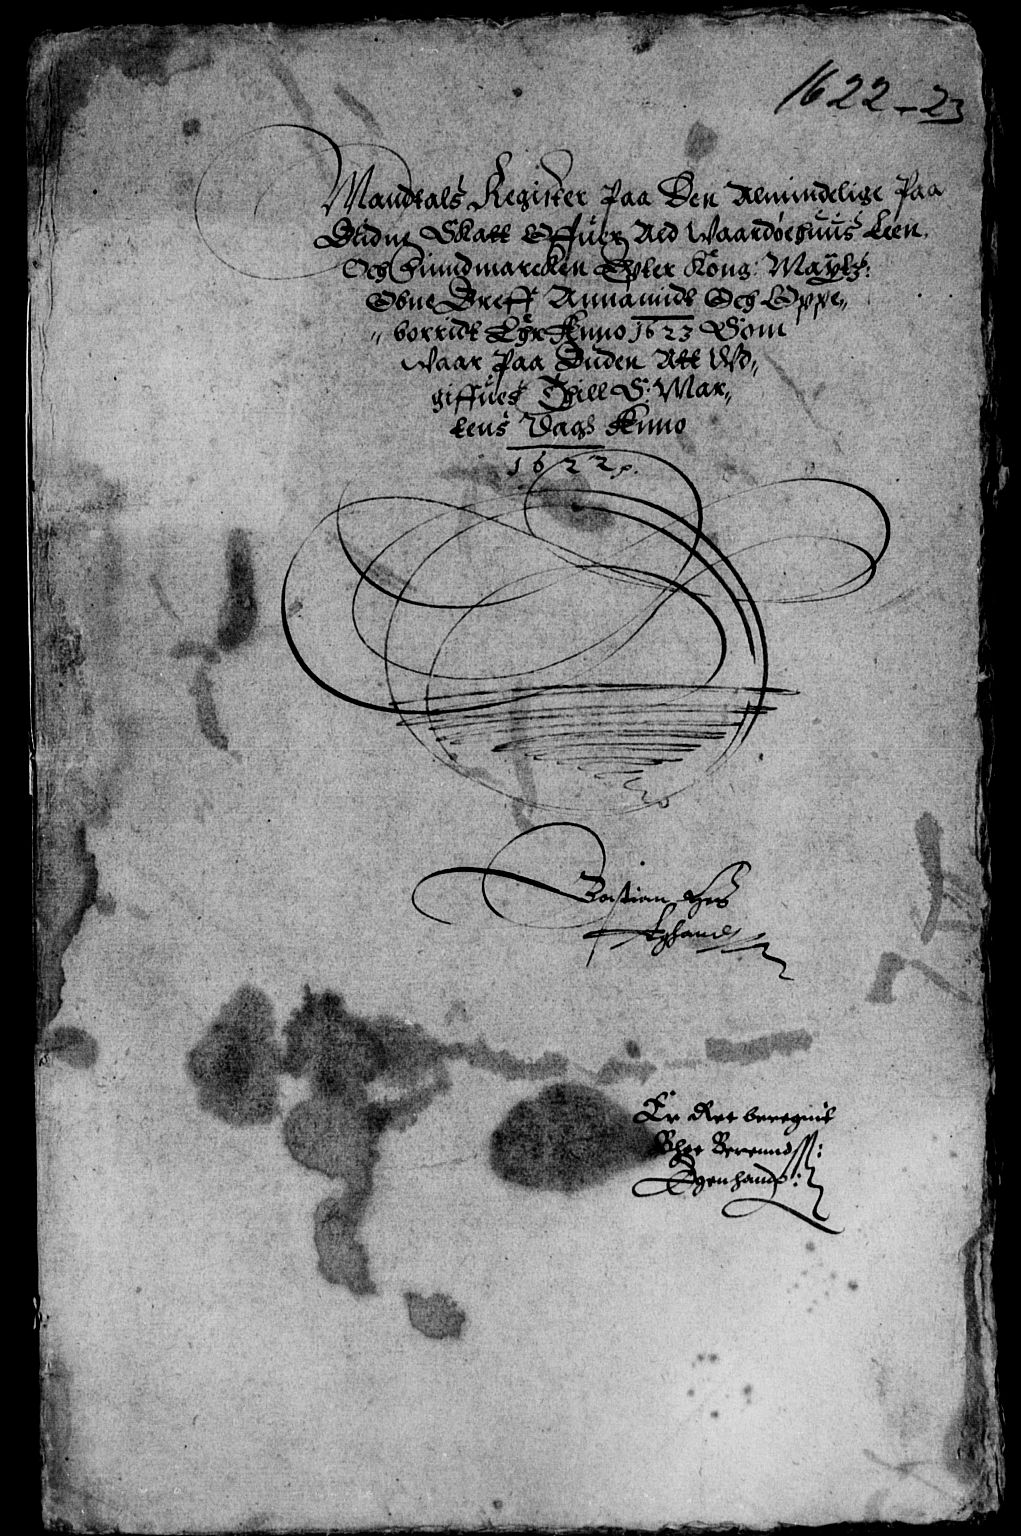 1622-23
Mandtals Register Paa Den Almindelige Paa
Budne Skatt Offuer Ald Waardøehuus Leen.
Och Finndmarcken Epter Kong: Maytz:
Obne Breff Annamidt Och Oppe„
„borridt Thr Anno 1623 Som
Waar Paa Buden Att Vd„
giffues Thill S: Mar„
tens Dagh Anno
1622
Bastian
Eghand
Er Ret beregnit
Berenndss:
Egenhandt: